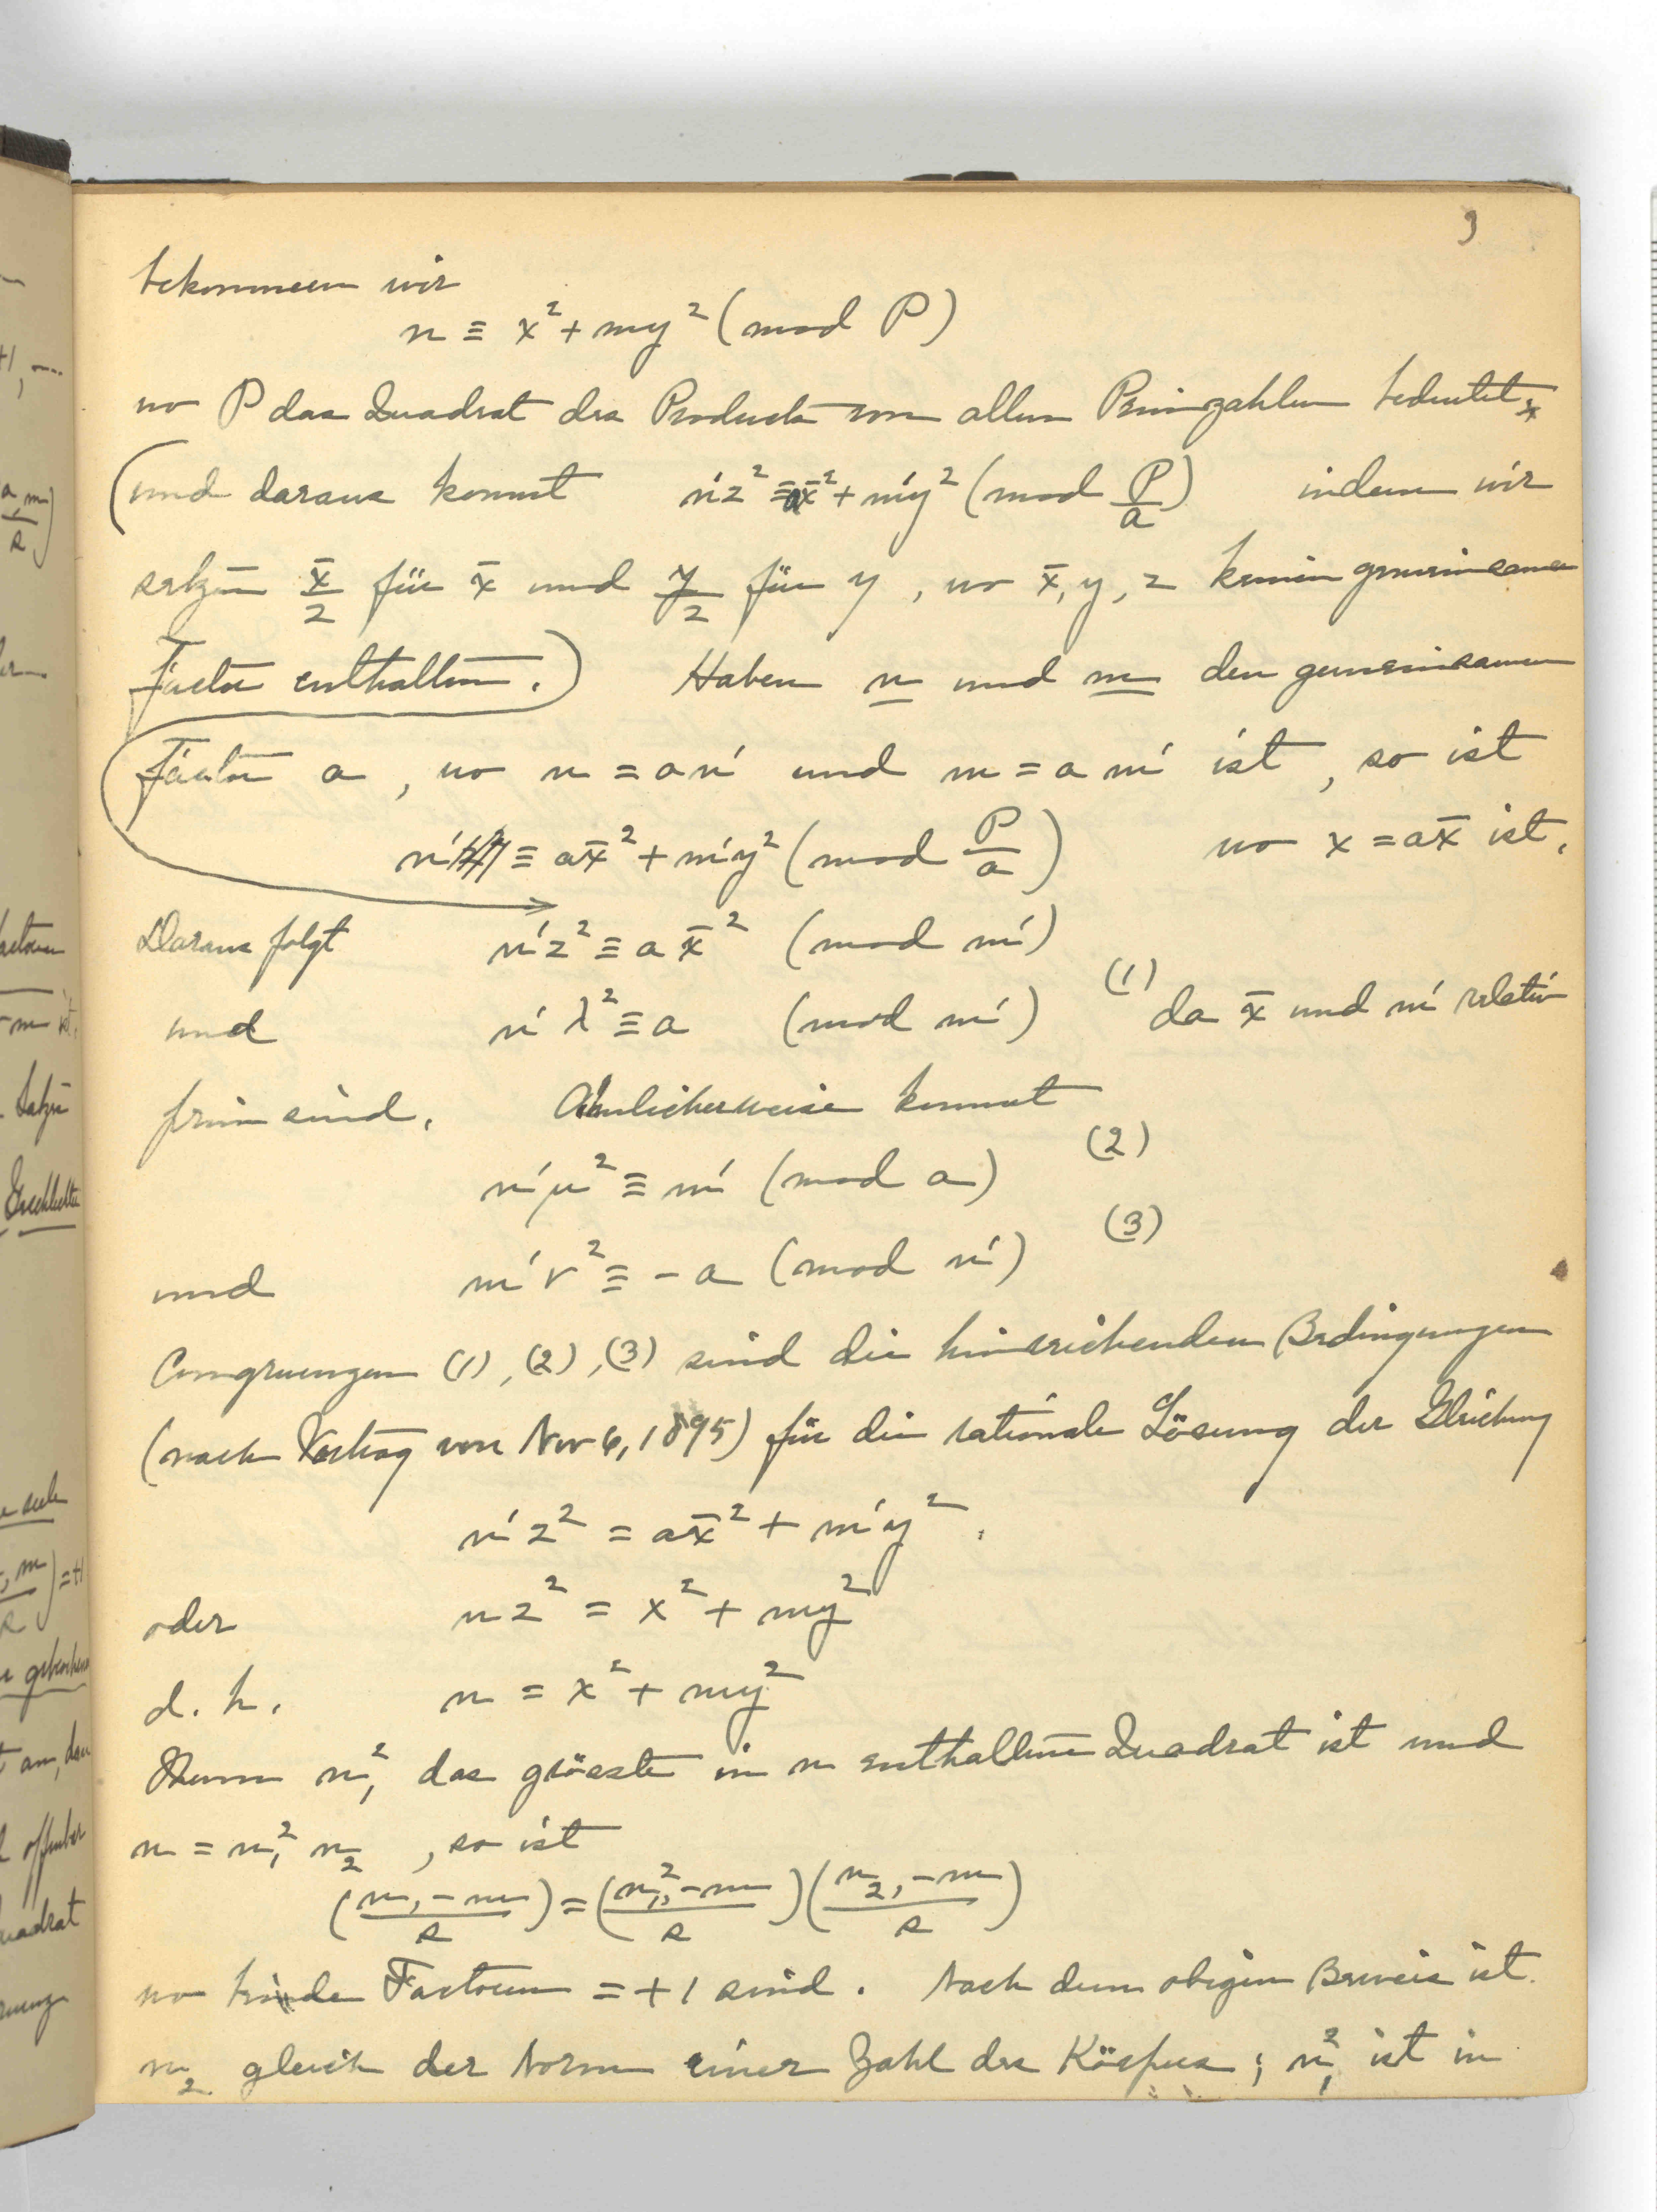 9
bekommen wir
n ≡ x² + my² (mod P)
wo P das Quadrat des Products von allen Primzahlen bedeutet,
(und daraus kommt n'z² ≡ ax̄² + m'y² (mod P/a) indem wir
setzen x̄/z für x̄ und y/z für y, wo x̄, y, z keinen gemeinsamen
Factor enthalten.) Haben n und m den gemeinsamen
Factor a, wo n = an' und m = am' ist, so ist
n' ≡ ax̄² + m'y² (mod P/a) wo x = ax̄ ist.
Daraus folgt n'z² ≡ ax̄² (mod m')
und n'λ² ≡ a (mod m') (1) da x̄ und m' relativ
prim sind. Ähnlicherweise kommt
n'μ² ≡ m' (mod a) (2)
und m'ν² ≡ -a (mod n') (3)
Congruenzen (1), (2), (3) sind die hinreichenden Bedingungen
(nach Vortrag von Nov 6, 1895) für die rationale Lösung der Gleichung
n'z² = ax̄² + m'y².
oder nz² = x² + my²
d. h. n = x² + my²
Wenn n₁² das grösste in n enthaltene Quadrat ist und
n = n₁² n₂, so ist
(n, -m / s) = (n₁², -m / s)(n₂, -m / s)
wo beide Factoren = +1 sind. Nach dem obigen Beweis ist
n₂ gleich der Norm einer Zahl des Körpers; n₁² ist in